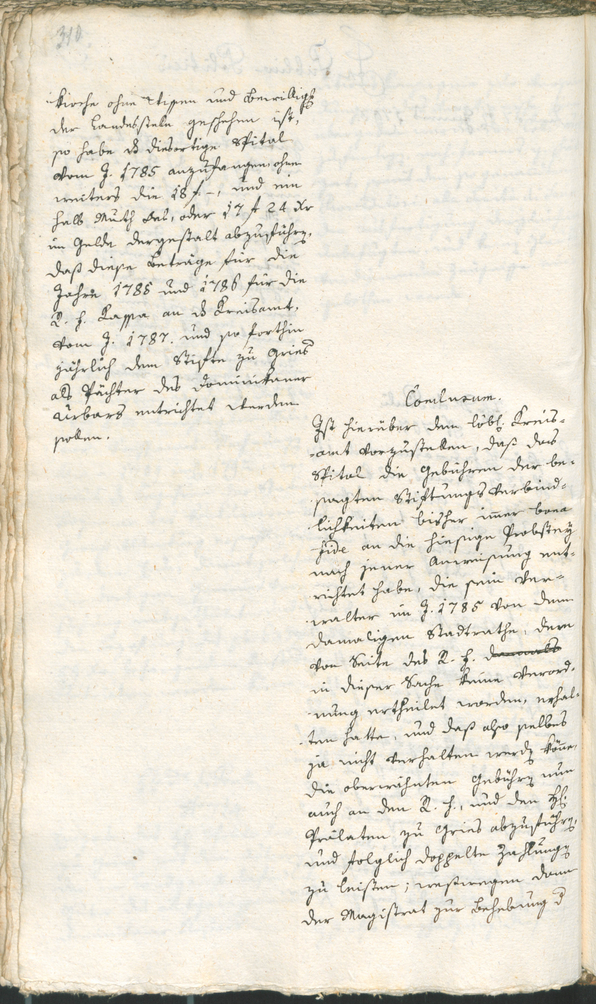 310.
Kirche ohne Wißen und Bewilligg
der Landesstele geschehen ist,
so habe das diesortige Spital
vom J. 1785 anzufangen ohne
weiters die 18 f –, und ein
halb Muth Oel, oder 17 f 24 Xr
im Gelde dergestalt abzuführn,
daß diese Beträge für die
Jahre 1785 und 1786 für die
R. f. Kassa an das Kreisamt,
vom J. 1787. und so forthin
jährlich dem Stifte zu Gries
als Pächter des Dominikaner
Urbars entrichtet werden
sollen.
Conclusum.
Ist hierüber dem löbl. Kreis-
amt vorzustellen, daß das
Spital die Gebühren der be-
sagten Stiftungs Verbind-
lichkeiten bisher immer bona
fide an die hiesige Probstey
nach jener Anweisung ent-
richtet habe, die sein Ver-
walter im J. 1785 von dem
damaligen Stadtrathe, dem
von Seite des R. f. damals
in dieser Sache keine Verord-
nung ertheilet worden, erhal-
ten hatte, und daß also selbes
ja nicht verhalten werden könne,
die oberwähnten Gebührn nun
auch an den R. f., und den H.
Prälaten zu Gries abzuführn,
und folglich doppelte Zahlungn
zu leisten; weßwegen dann
der Magistrat zur Behebung d